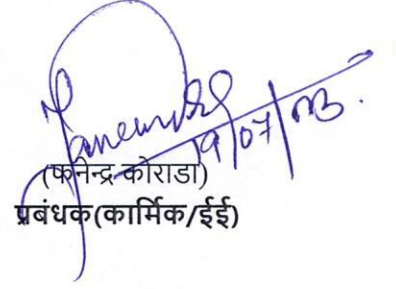 19/07/23.
(फनेन्द्र कोराडा)
प्रबंधक(कार्मिक/ईई)